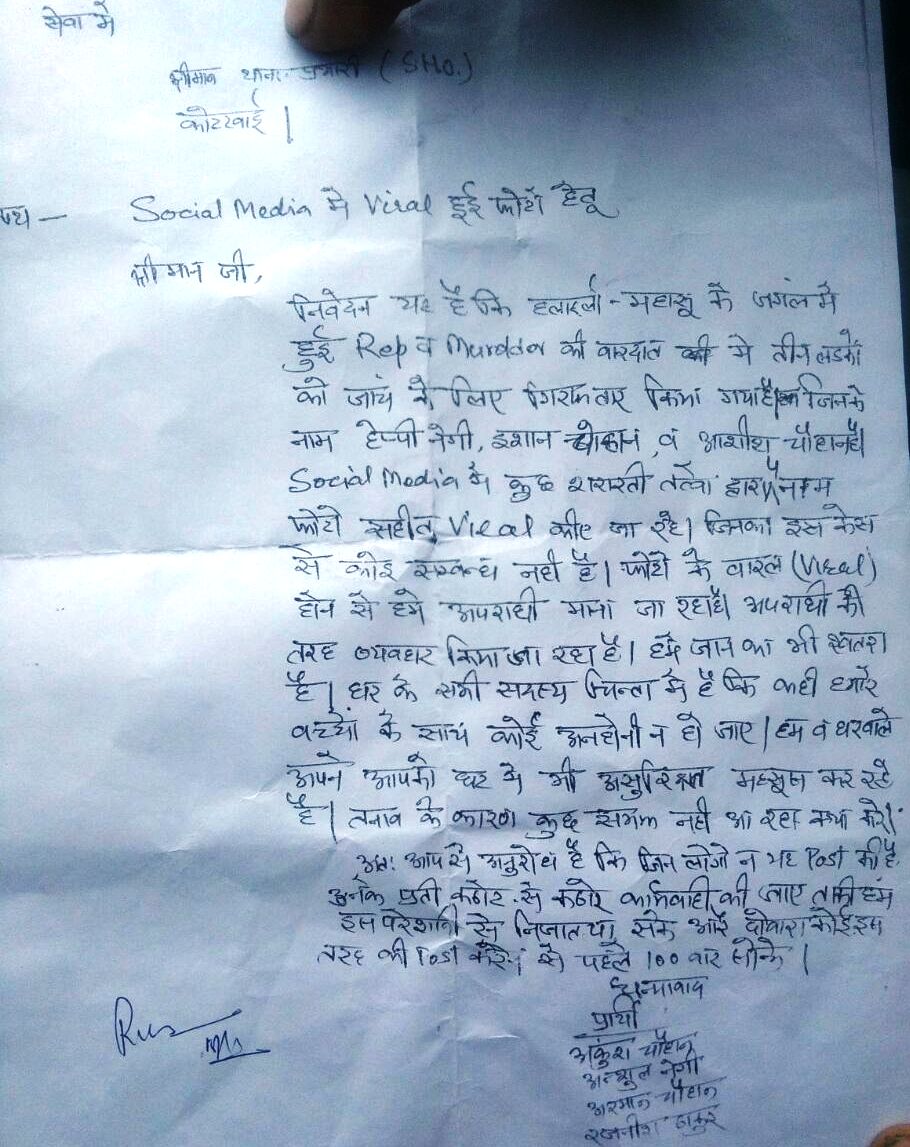 सेवा मे
श्रीमान थाना प्रभारी (SHO.)
कोटखाई |
Social Media मे Viral हुई फोटो हेतू
श्रीमान जी,
निवेदन यह है कि हलाईला - महासू के जगंल मे
हुई Rep व Murddor की वारदात मे तीन लडकों
को जांच के लिए गिराफ्तार किया गया है। जिनके
नाम हेप्पी नेगी, इशान चोहान, व आशीश चौहान है।
Social Media मे कुछ शरारती तत्वो द्वारा नाम
फोटो सहीत Viral कीए जा रहे। जिनका इस केस
से कोई सम्बन्ध नही है। फोटो के वारल (Viral)
होने से हमे अपराधी माना जा रहा है। अपराधी की
तरह व्यवहार किया जा रहा है। हमे जान का भी खतरा
है। घर के सभी सदस्य चिन्ता मे है कि कही हमारे
बच्चो के साथ कोई अनहोनी न हो जाए। हम व घरवाले
अपने आपको घर मे भी असुरक्षित महसूस कर रहे
है। तनाव के कारण कुछ समझ नही आ रहा क्या करे।
अतः आप से अनुरोध है कि जिन लोगो न यह Post की है
उनके प्रती कठोर से कठोर कार्यवाही की जाए ताकी हम
इस परेशानी से निजात पा सके और दोबारा कोई इस
तरह की Post करने से पहले 100 बार सोचे।
धन्यावाद
प्रार्थी
अकुंश चौहान
अन्शुल नेगी
अरमान चौहान
रजनीश ठाकुर